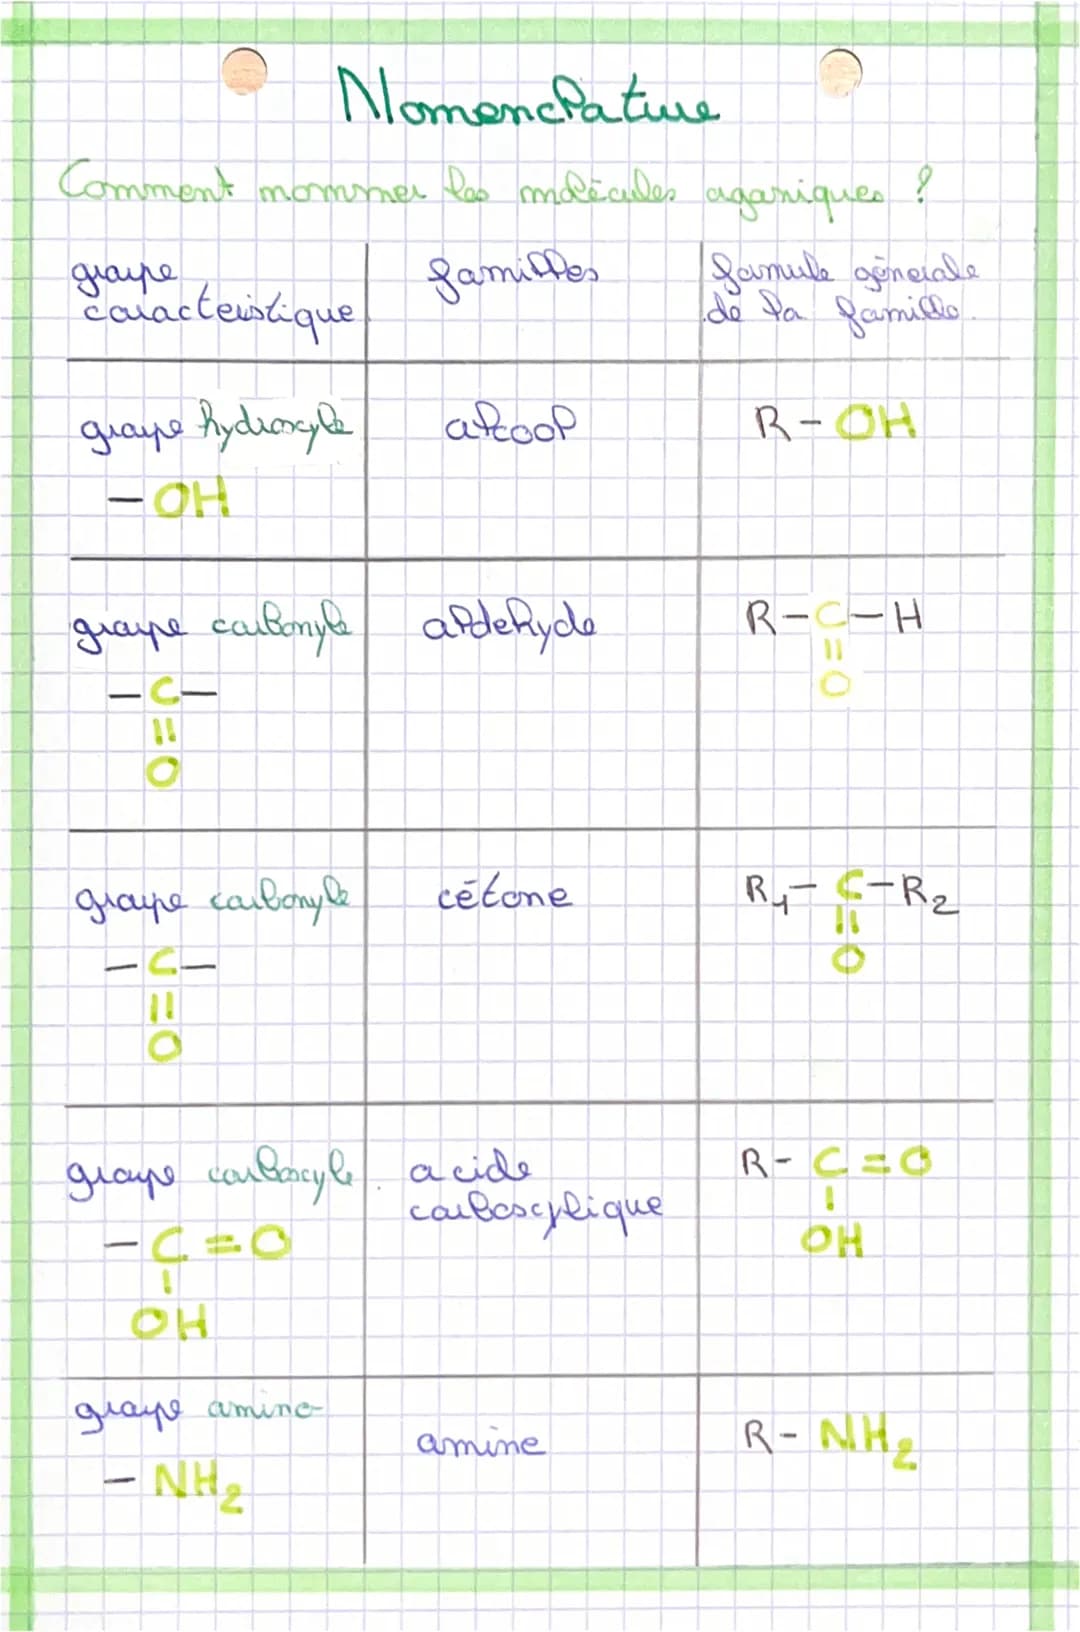 Nomenclature
Comment nommer les molécules organiques ?
groupe caractéristique
familles
formule générale de la famille.
groupe hydroxyle
alcool
R - OH
- OH
groupe carbonyle
aldehyde
R - C - H
||
O
- C -
||
O
groupe carbonyle
cétone
R1 - C - R2
||
O
- C -
||
O
groupe carboxyle
acide carboxylique
R - C = O
|
OH
- C = O
|
OH
groupe amino
amine
R - NH2
- NH2